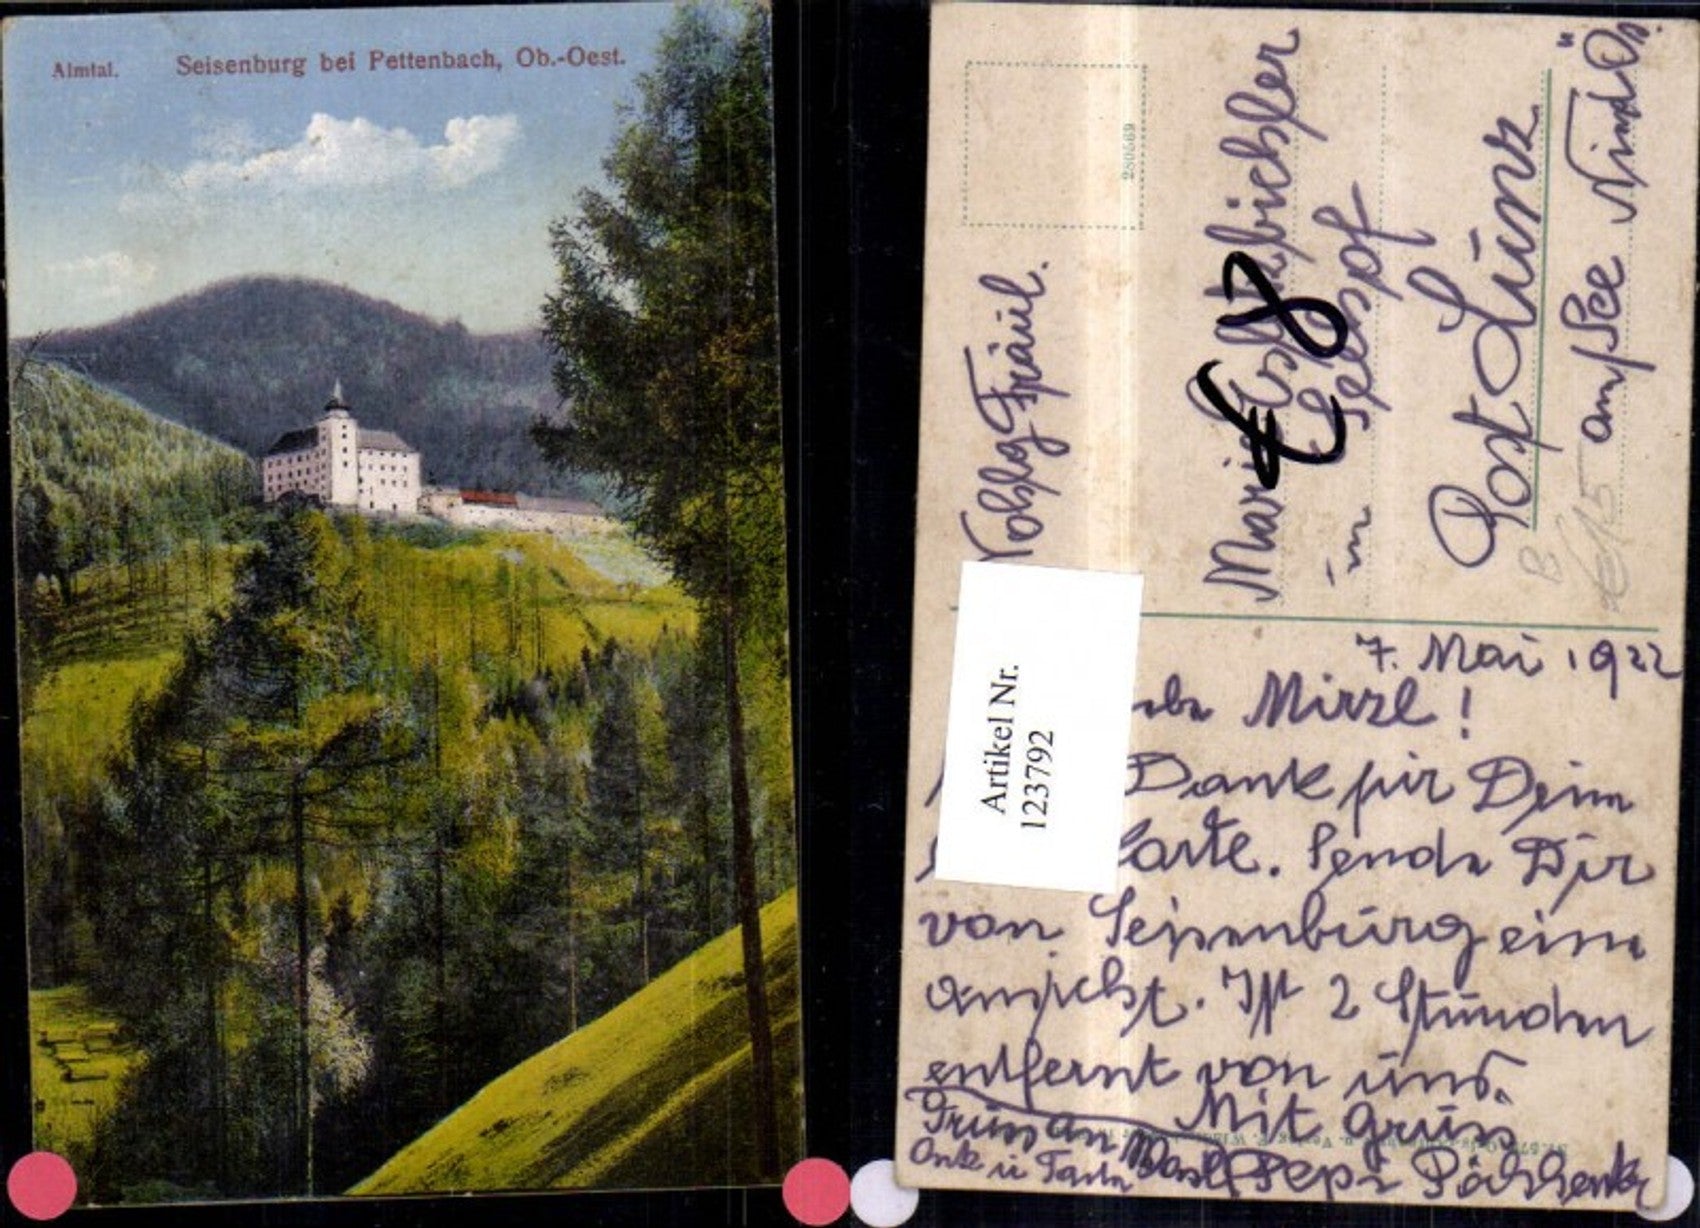 Almtal.
Seisenburg bei Pettenbach, Ob.-Oest.
280569
Wohlg Fräul.
Marie
in Seehof
Post Lunz
am See Nied Ös.
B
€ 15
€ 8
Artikel Nr.
123792
7. Mai 1922
Mirzl!
Dank für Deine
Karte. Sende Dir
von Seisenburg eine
Ansicht. Ist 2 Stunden
entfernt von uns.
Mit Gruss
Pepi
Gruss an
Onk u Tante